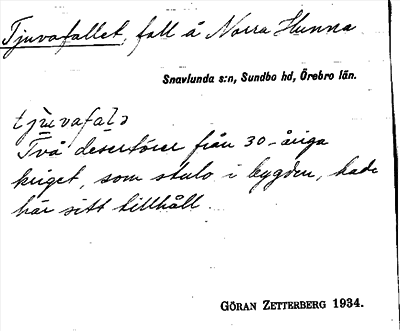 Tjuvafallet, fall å Norra Hunna
Snavlunda s:n, Sundbo hd, Örebro län.
Två desertörer från 30-åriga
kriget, som stulo i bygden, hade
här sitt tillhåll.
GÖRAN ZETTERBERG 1934.